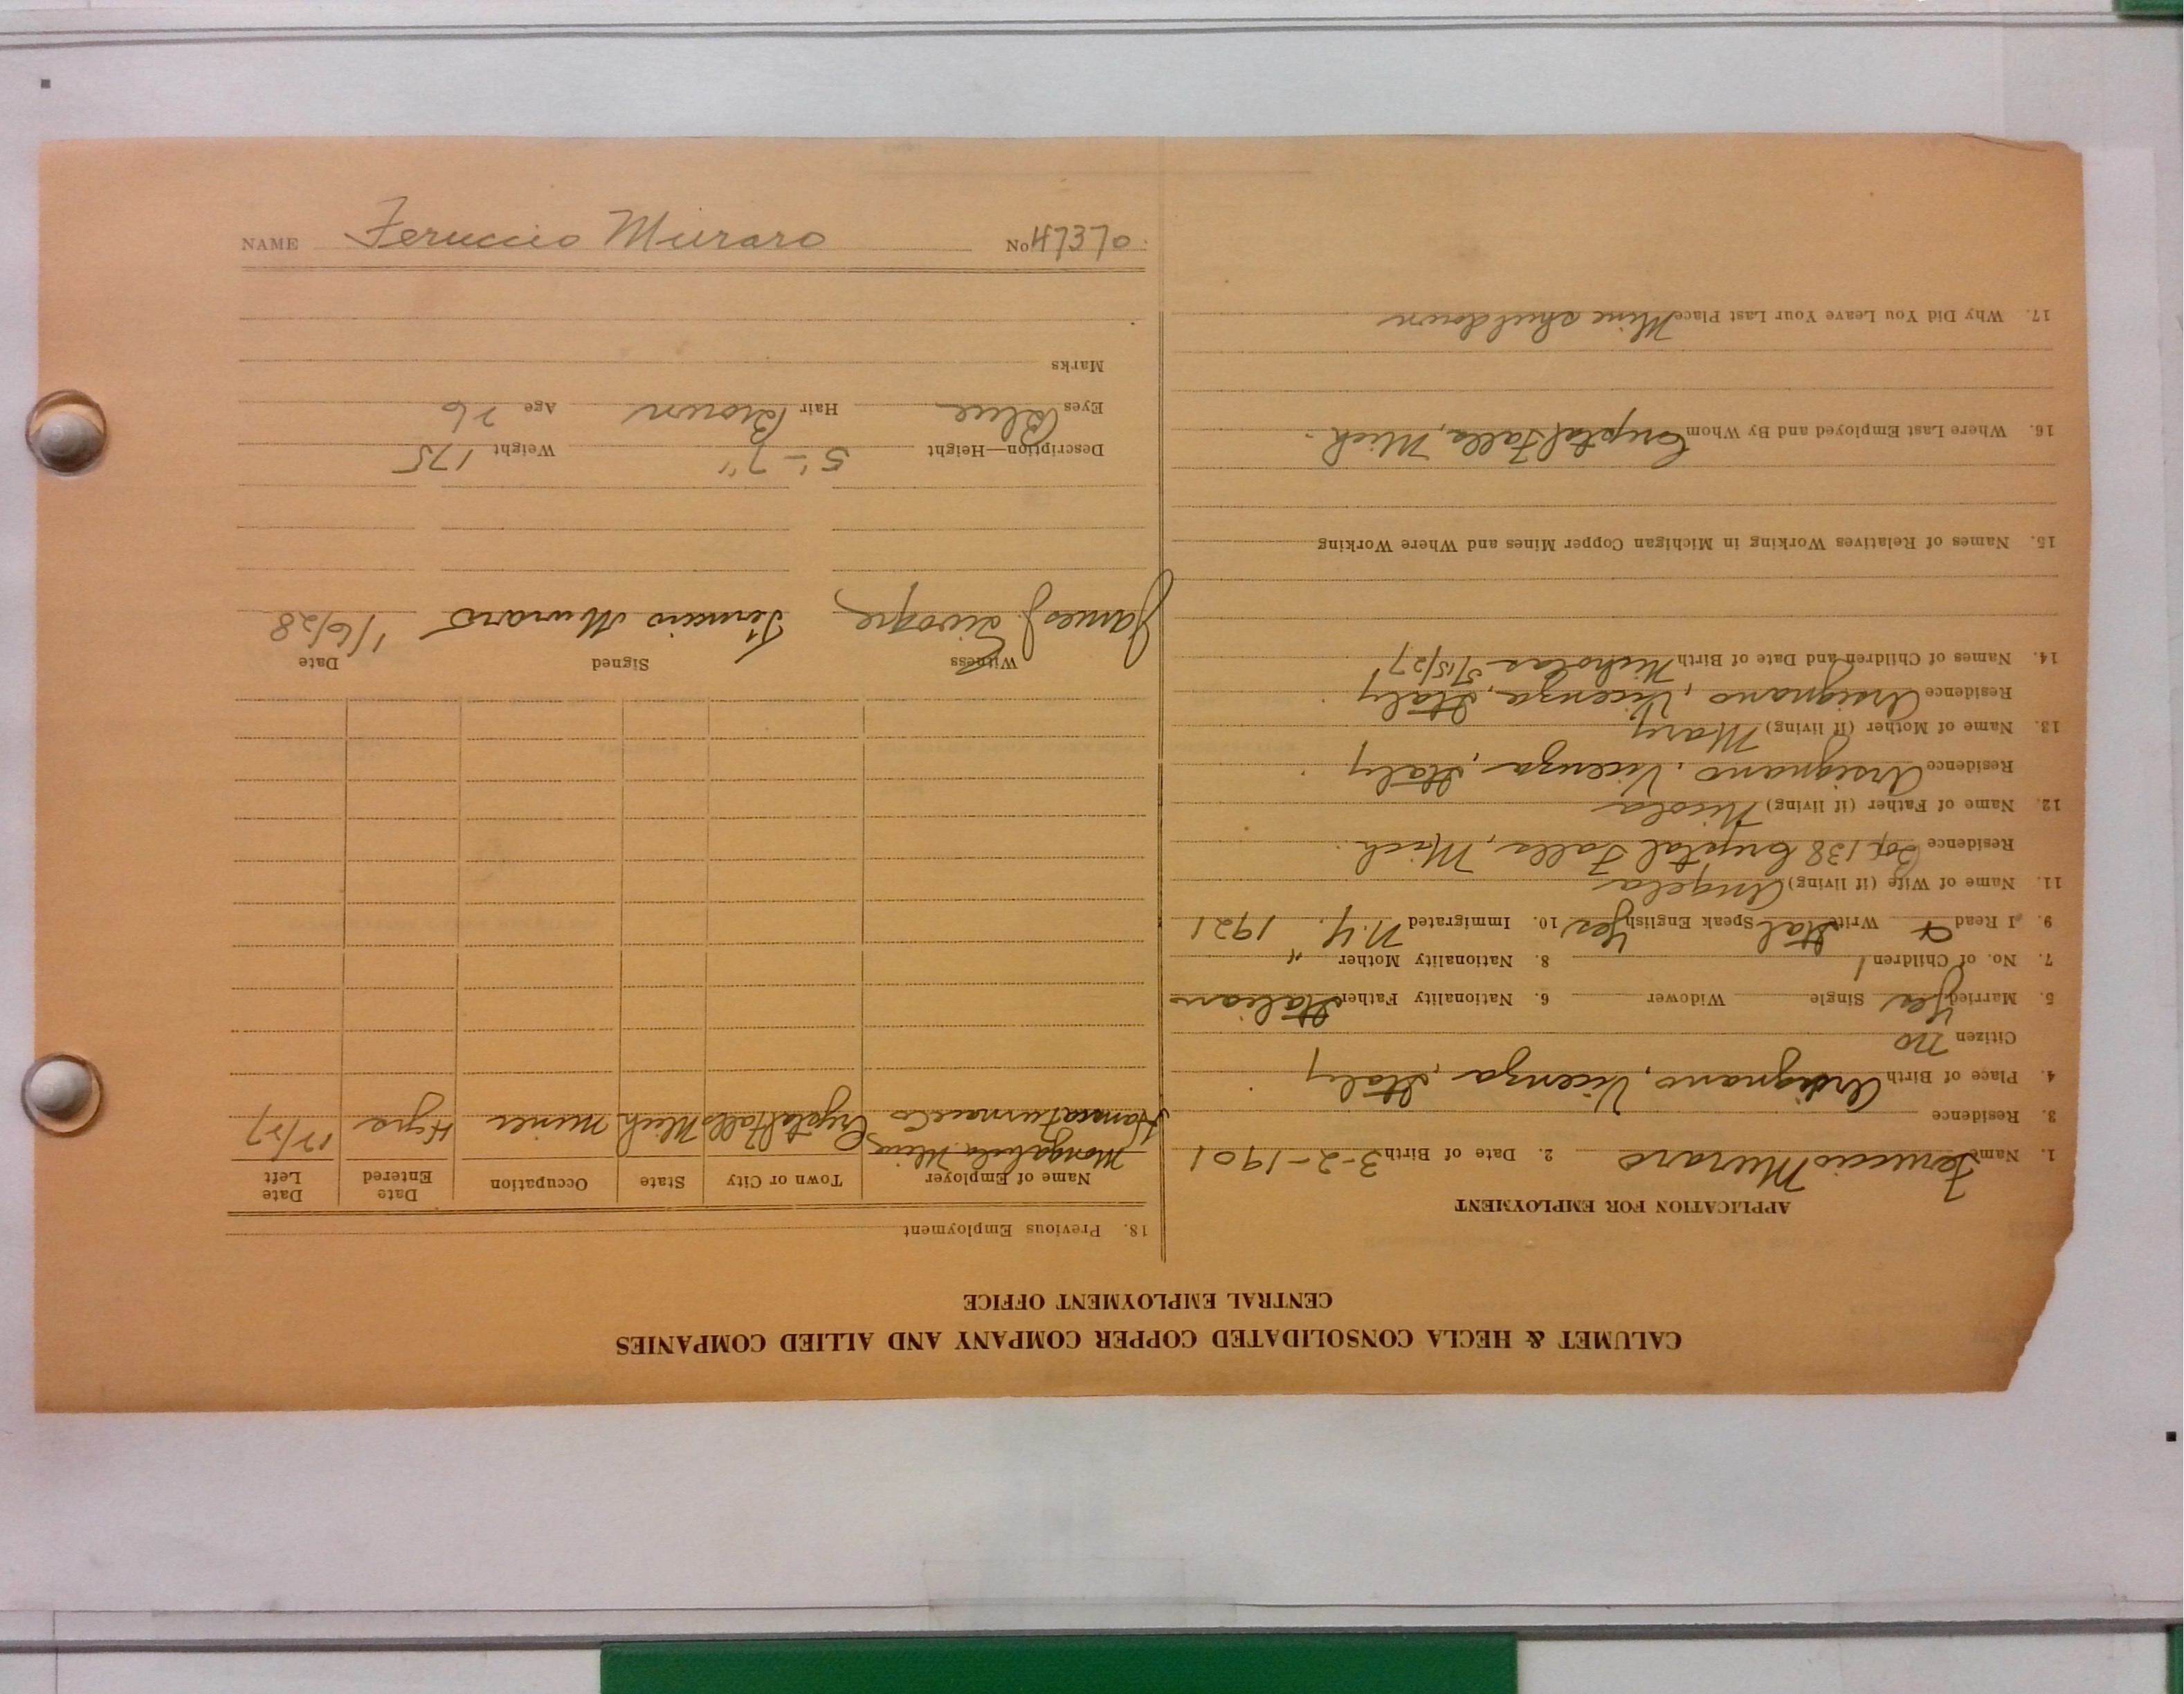 NAME Feruccio Muraro No 47370
CALUMET & HECLA CONSOLIDATED COPPER COMPANY AND ALLIED COMPANIES
CENTRAL EMPLOYMENT OFFICE
APPLICATION FOR EMPLOYMENT
1. Name Feruccio Muraro 2. Date of Birth 3-2-1901
3. Residence
4. Place of Birth Arsignano, Vicenza, Italy
Citizen no
5. Married Yes Single Widower 6. Nationality Father Italian
7. No. of Children 1 8. Nationality Mother "
9. I Read + Write Ital Speak English Yes 10. Immigrated N.Y. 1921
11. Name of Wife (if living) Angela
Residence Box 138 Crystal Falls, Mich.
12. Name of Father (if living) Nicola
Residence Arsignano, Vicenza, Italy
13. Name of Mother (if living) Mary
Residence Arsignano, Vicenza, Italy
14. Names of Children and Date of Birth Nicholas 5/15/27
15. Names of Relatives Working in Michigan Copper Mines and Where Working
16. Where Last Employed and By Whom Crystal Falls, Mich.
17. Why Did You Leave Your Last Place Mine shut down
18. Previous Employment
Name of Employer Town or City State Occupation Date Entered Date Left
Mine Crystal Falls Mich miner 4 yrs 12/27
Furnace Co
Witness Signed Date
James J. Feruccio Muraro 1/6/28
Description—Height 5'-7" Weight 175
Eyes Blue Hair Brown Age 26
Marks